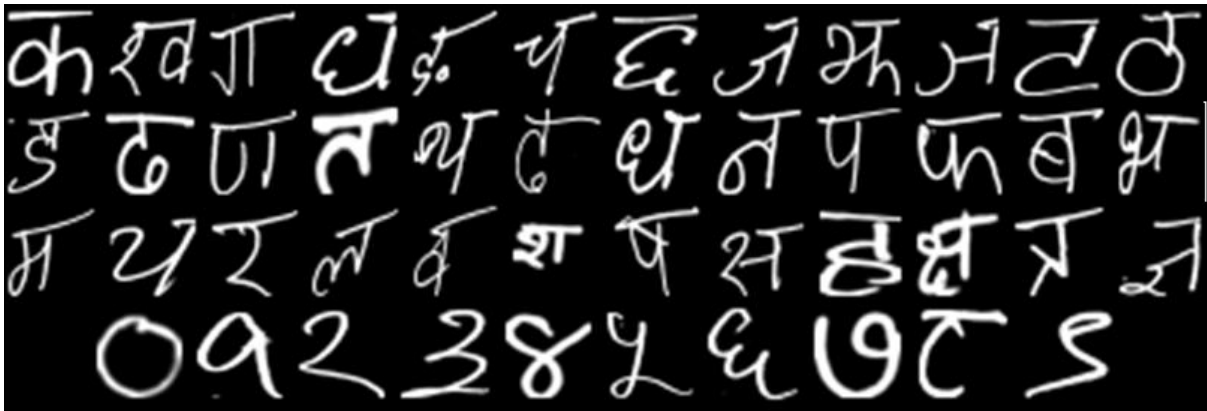 क ख ग घ ङ च छ ज झ ञ ट ठ
ड ढ ण त थ द ध न प फ ब भ
म य र ल व श ष स ह क्ष त्र ज्ञ
० १ २ ३ ४ ५ ६ ७ ८ ९